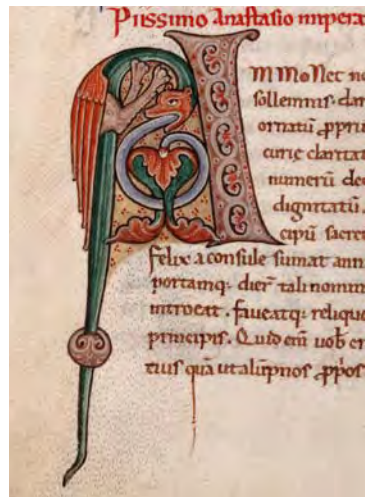 Piissimo Anastasio impera
AMMoNet no
sollemnis. dar
ornatū ꝓpriu
curię claritat
numerū dec
dignitatū.
cipū sacrer
felix a consule sumat ann
portamq; dier tali nomin
introeat. faueatq; relique
principis. Quid em̄ uob er
tius quā ut alūpnos ꝓpos